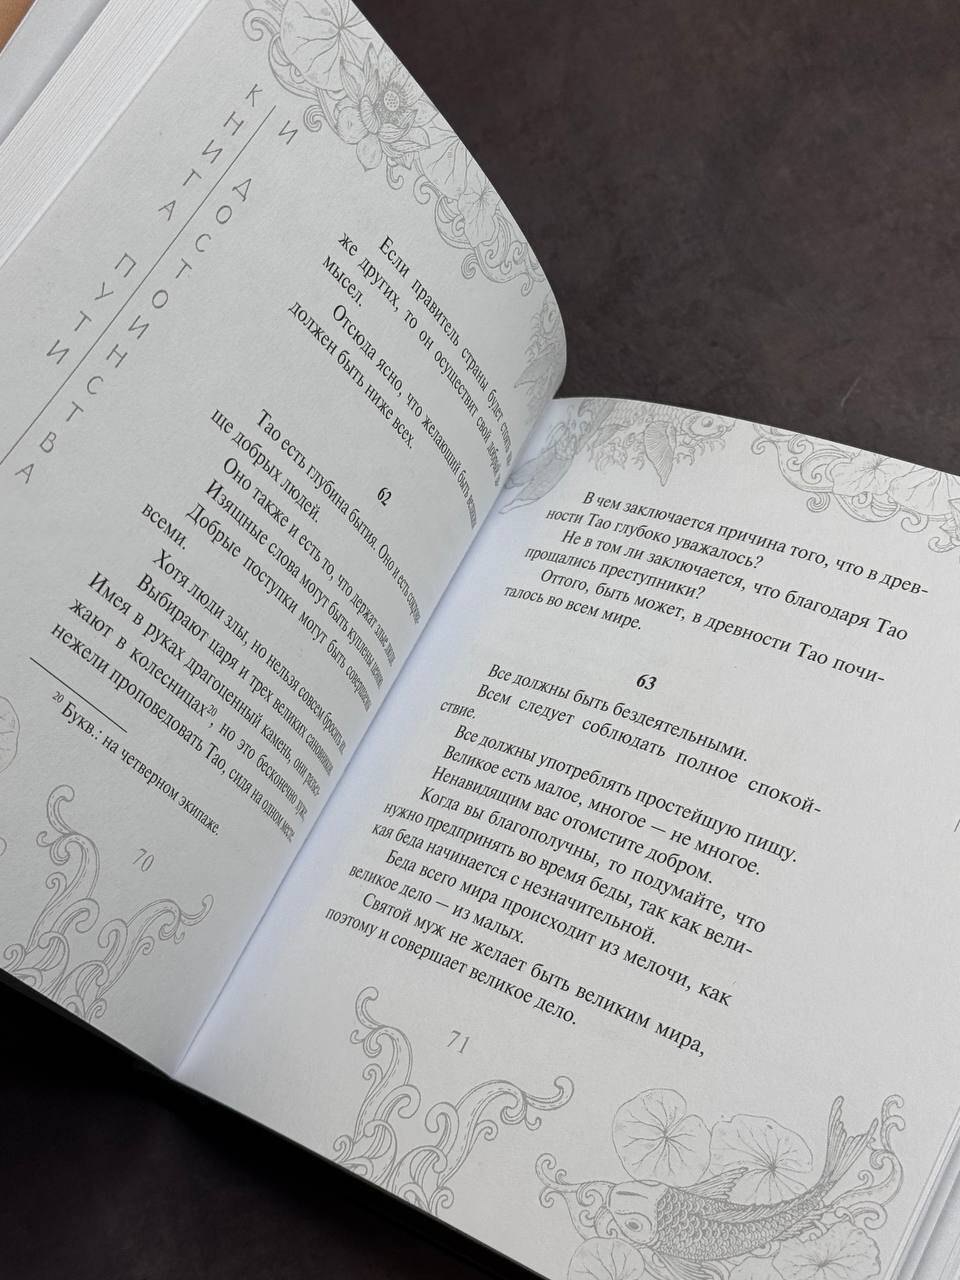 КНИГА ПУТИ
И ДОСТОИНСТВА
Если правитель страны будет
же других, то он осуществит свой добрый
мысел.
Отсюда ясно, что желающий быть
должен быть ниже всех.
62
Тао есть глубина бытия. Оно и есть
ще добрых людей.
Оно также и есть то, что держат злые люди.
Изящные слова могут быть куплены ценою
Добрые поступки могут быть совершены
всеми.
Хотя люди злы, но нельзя совсем бросить их.
Выбирают царя и трех великих сановников.
Имея в руках драгоценный камень, они разъез-
жают в колесницах²⁰, но это бесконечно хуже,
нежели проповедовать Тао, сидя на одном месте.
²⁰ Букв.: на четверном экипаже.
70
В чем заключается причина того, что в древ-
ности Тао глубоко уважалось?
Не в том ли заключается, что благодаря Тао
прощались преступники?
Оттого, быть может, в древности Тао почи-
талось во всем мире.
63
Все должны быть бездеятельными.
Всем следует соблюдать полное спокой-
ствие.
Все должны употреблять простейшую пищу.
Великое есть малое, многое — не многое.
Ненавидящим вас отомстите добром.
Когда вы благополучны, то подумайте, что
нужно предпринять во время беды, так как вели-
кая беда начинается с незначительной.
Беда всего мира происходит из мелочи, как
великое дело — из малых.
Святой муж не желает быть великим мира,
поэтому и совершает великое дело.
71